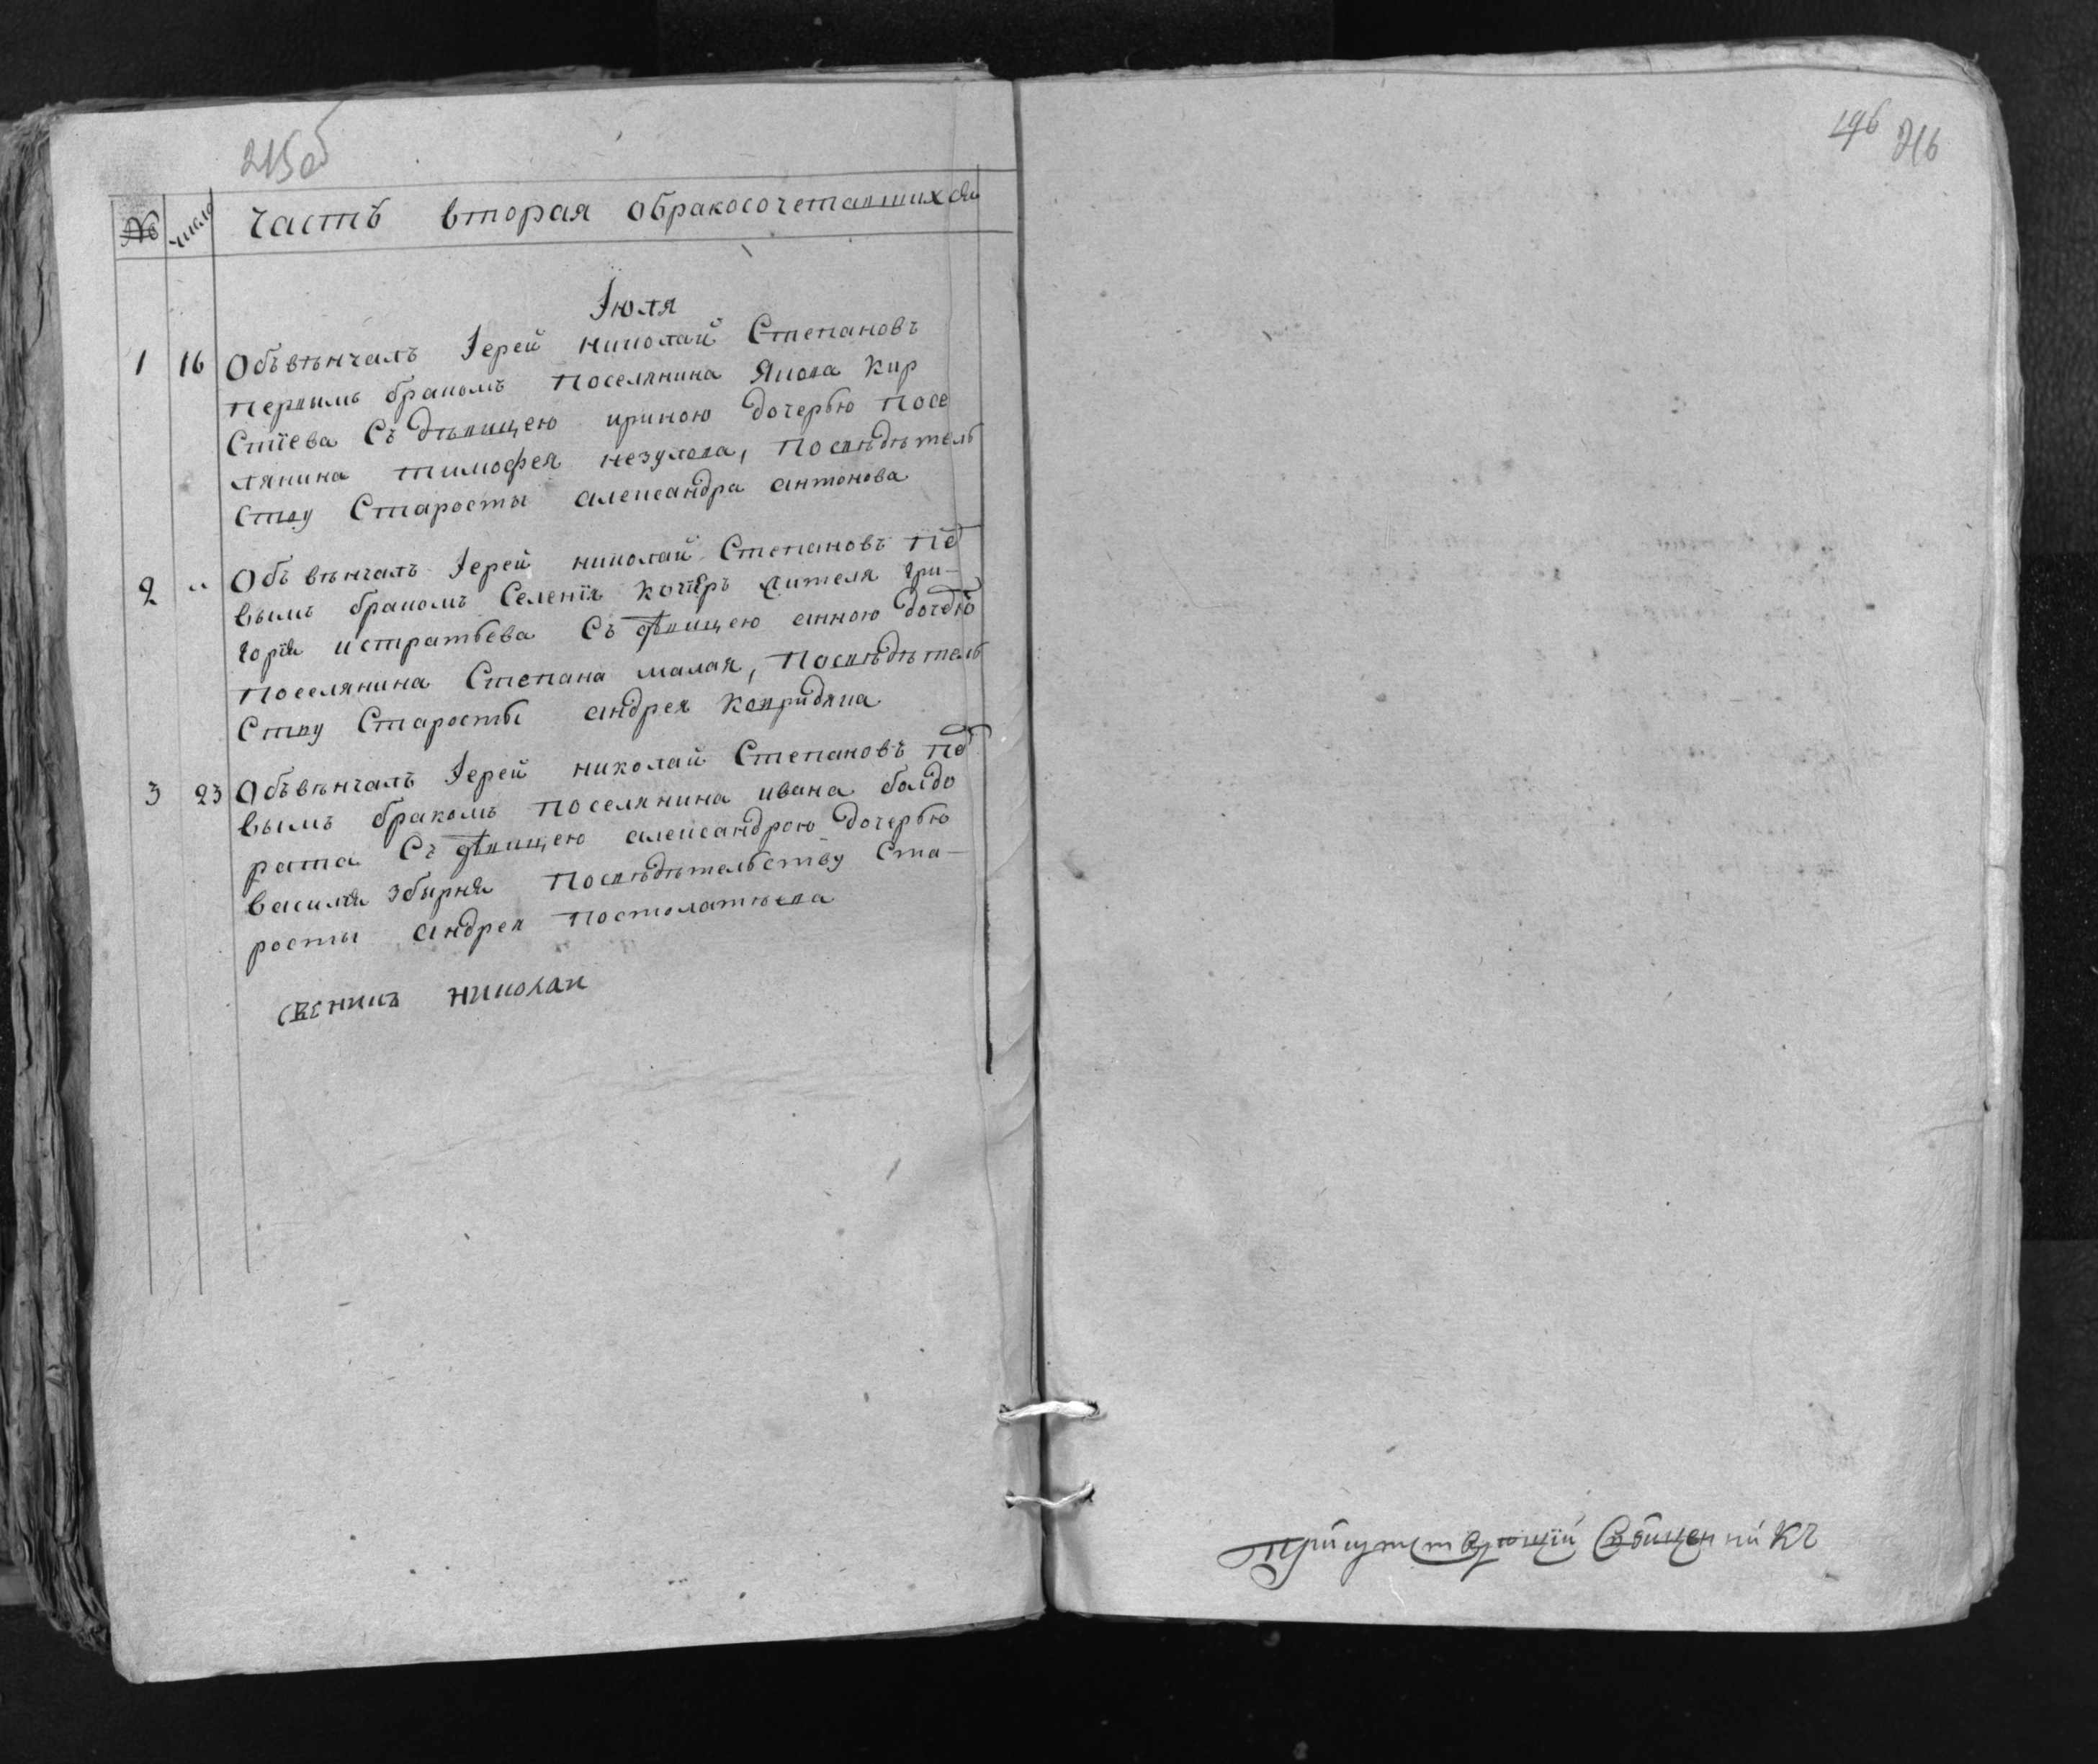 215об
№ число Часть вторая обракосочетавшихся
Іюля
1 16 Объвѣнчалъ Іерей николай Степановъ
первимъ бракомъ поселянина Якова Кир
стїева Съ дѣвицею ириною дочерью посе
лянина тимофея незулова, посвѣдѣтель
ству Старосты александра антонова
2 „ Объвѣнчалъ Іерей николай Степановъ пе
вымъ бракомъ Селенїя жителя гри–
горїя истратьева Съ двицею анною дочерю
поселянина Степана малая, посвѣдѣтель
Ству Старосты андрея
3 23 Объвѣнчалъ Іерей николай Степановъ пе
вымъ бракомъ поселянина ивана болдо
рата Съ двицею александрою дочерью
василїя збырня посвѣдѣтельству Ста–
росты андрея
николаи
196 216
Священникъ